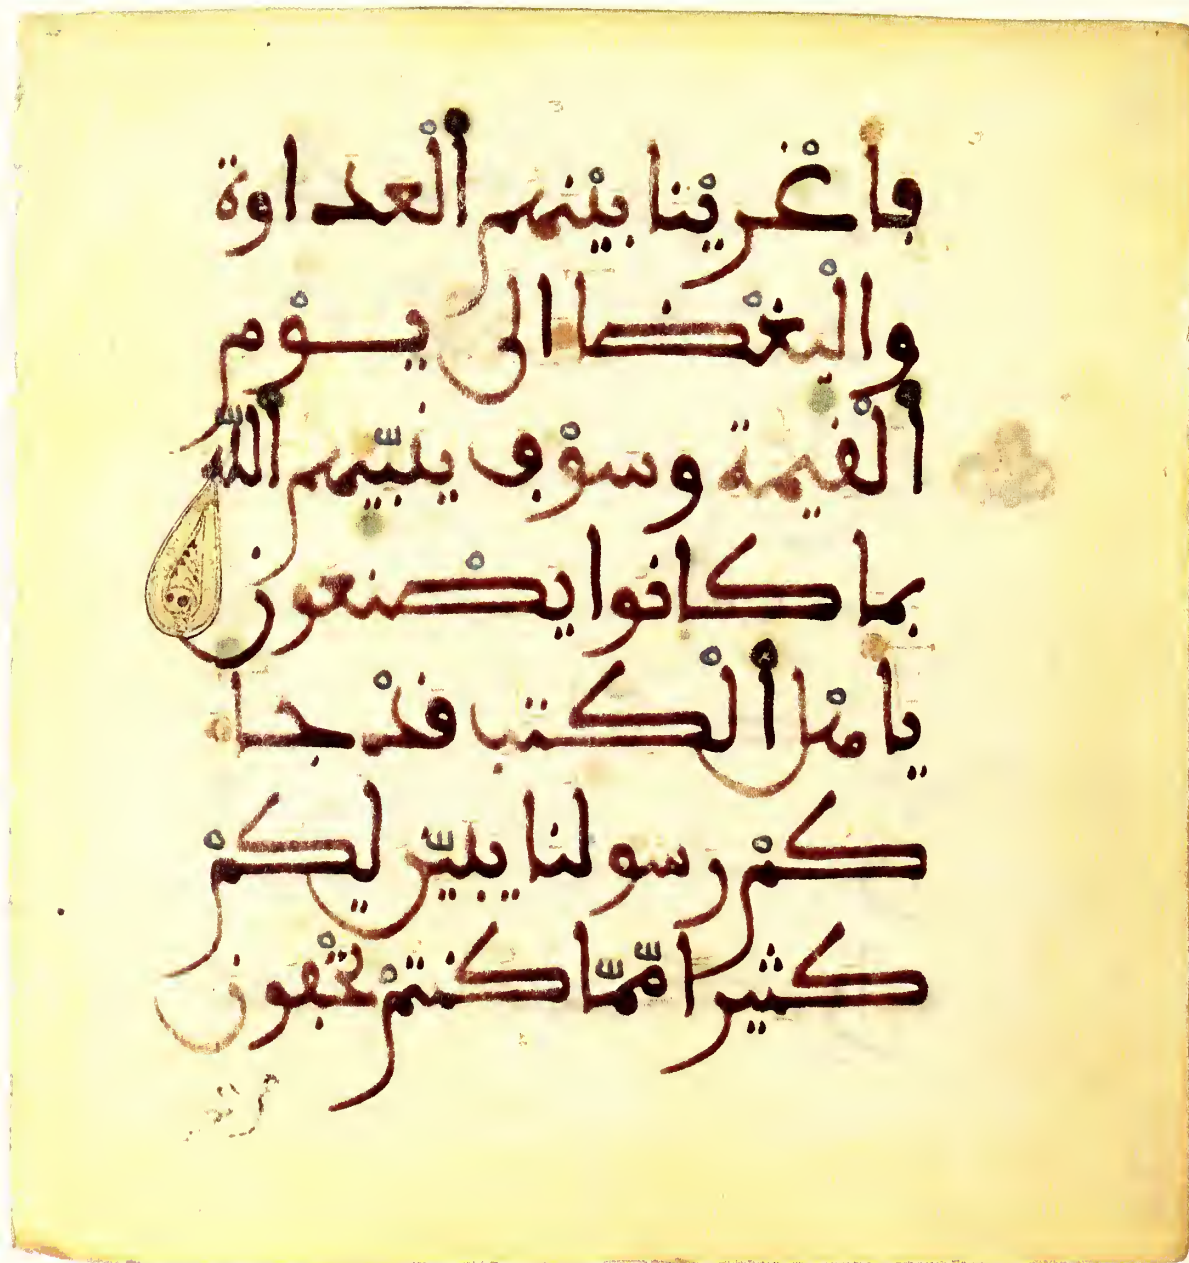 فأغرينا بينهم ألعداوة
والبغضا الى يوم
ألقيمة وسوف ينبيهم ألله
بما كانوا يصنعون
يأهل ألكتب قد جا
كم رسولنا يبين لكم
كثيرا مما كنتم تخفون